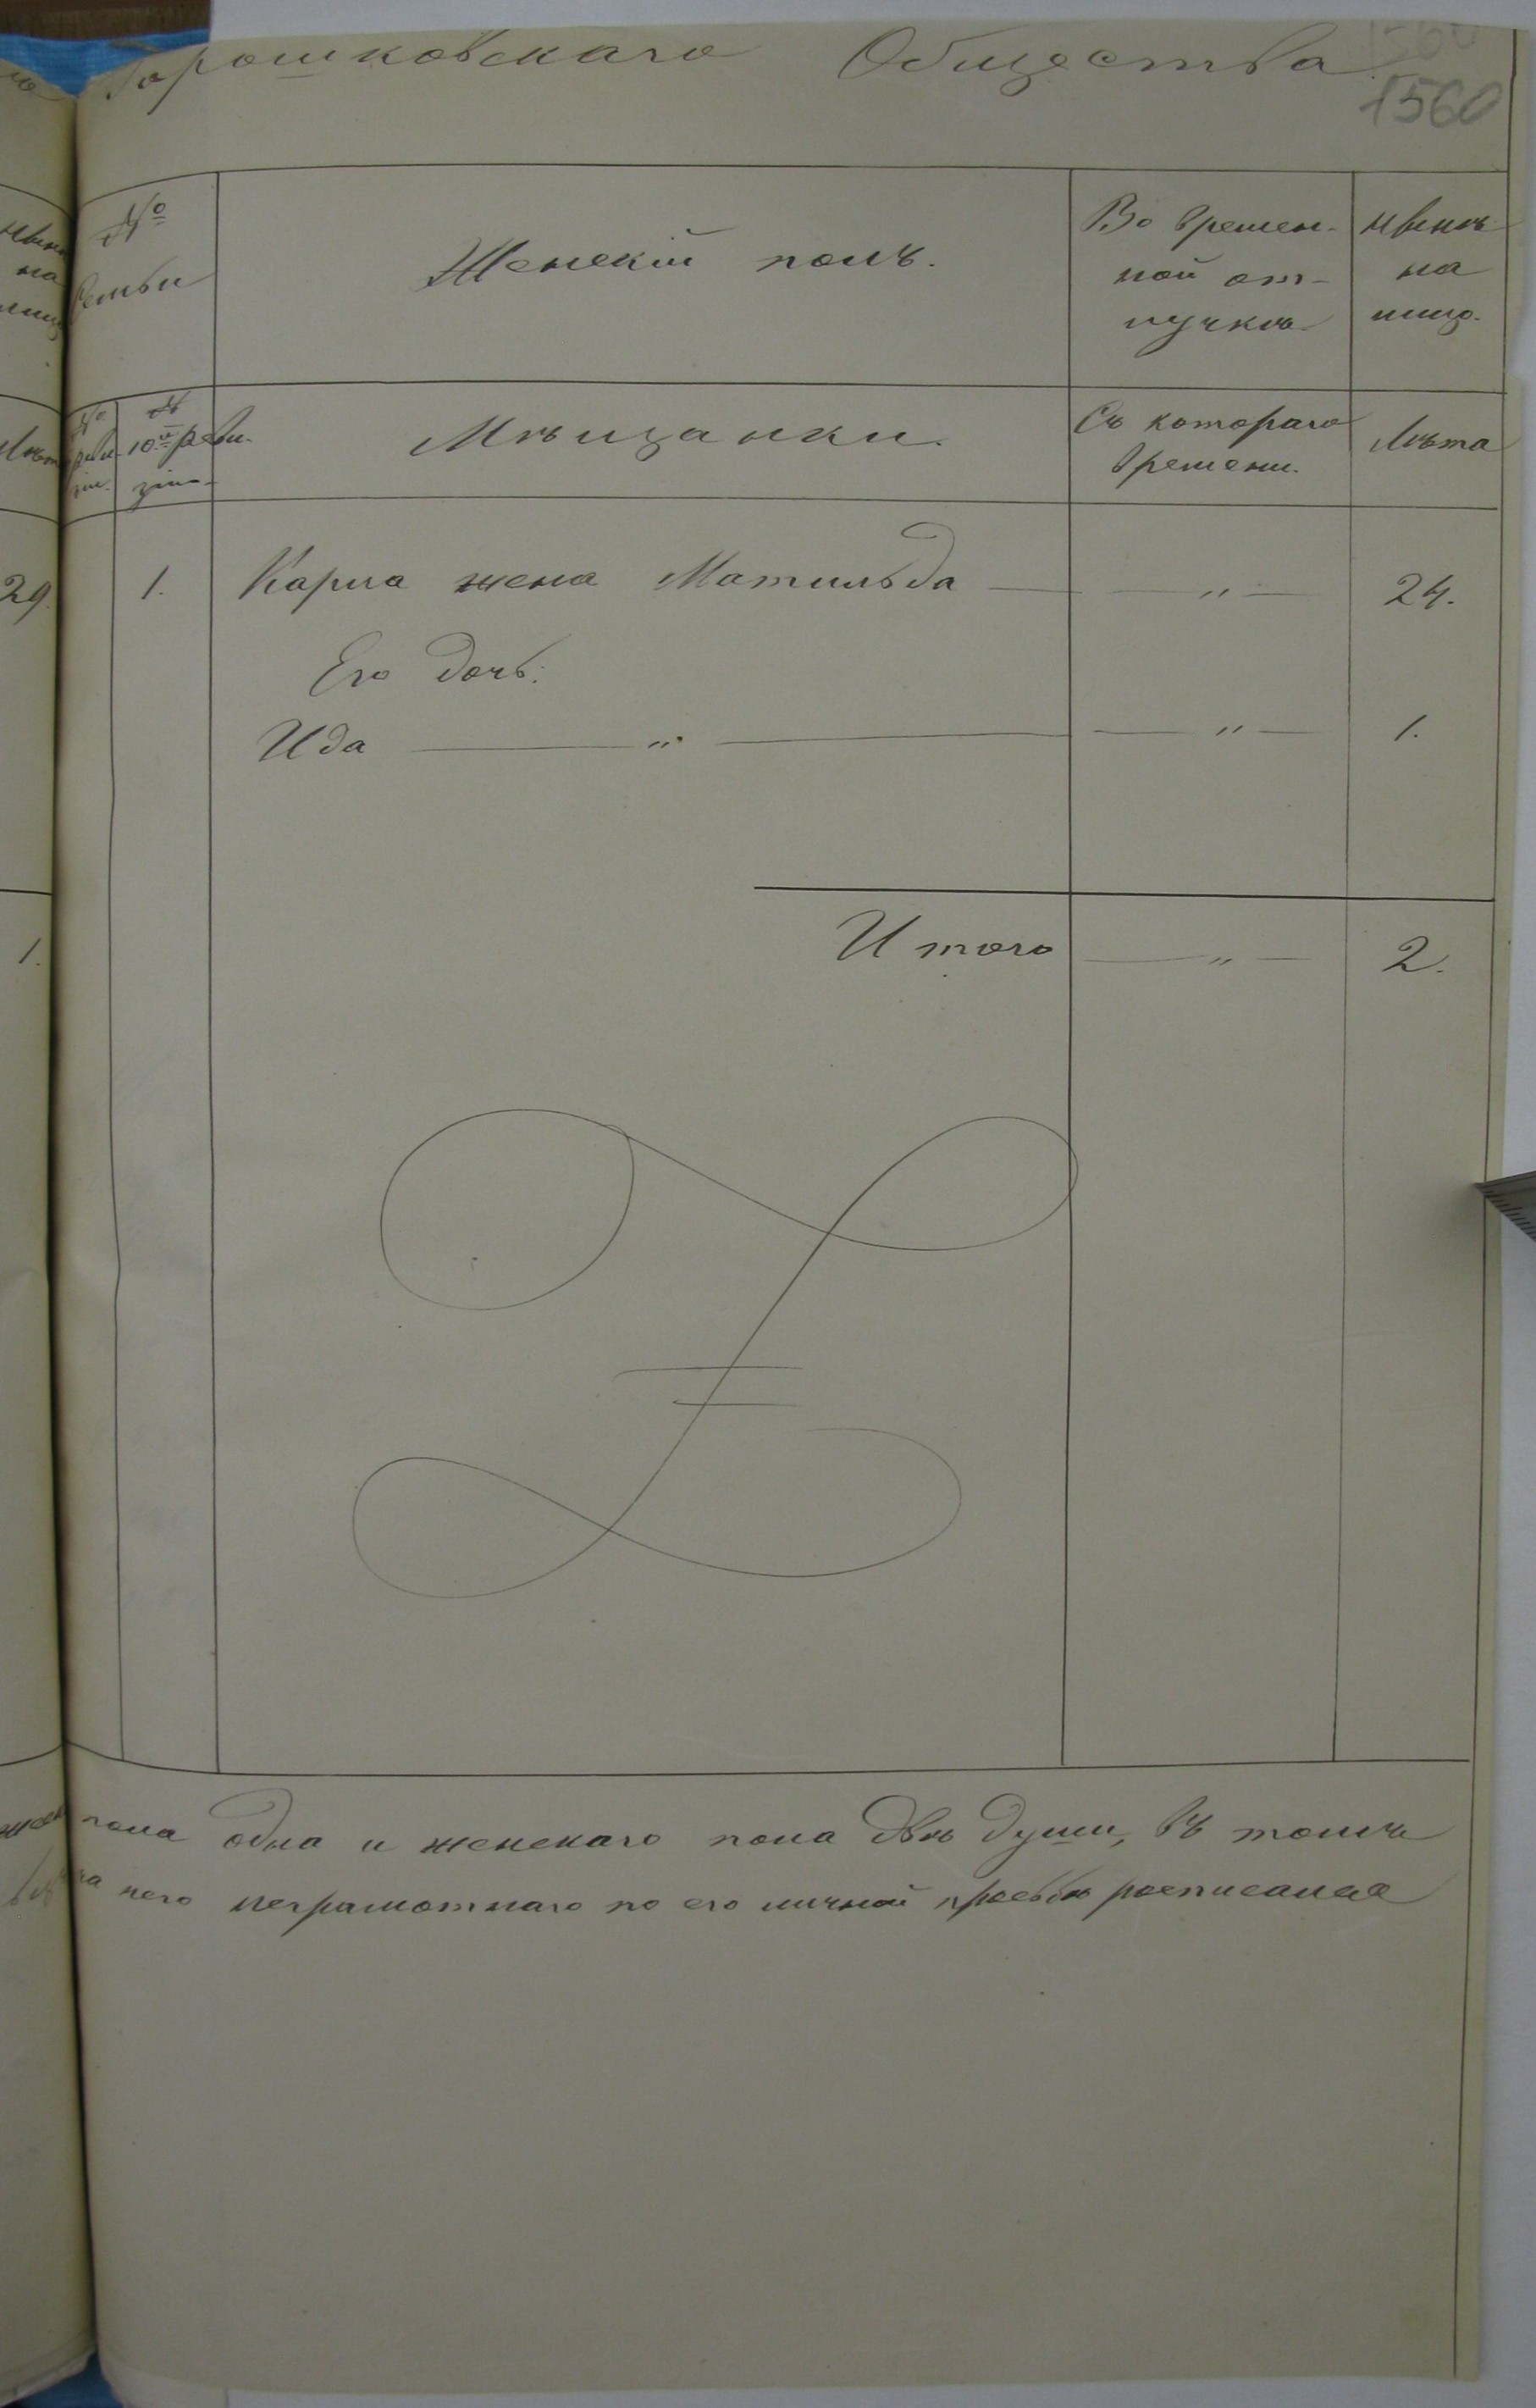 Горошковскаго Общества
1560
№ Семьи
Женскій полъ.
Во времен-
ной от-
лучкѣ
нынѣ
на
лицо.
№ реви-
зіи.
№
10й реви-
зіи
Мѣщанки.
Съ котораго
времени.
Лѣта
29.
1. Карла жена Матильда — — „ — 24.
Его дочь:
Ида — „ — — „ — 1.
1.
Итого — „ — 2.
пола одна и женскаго пола двѣ души, въ томъ
него неграмотнаго по его личной просьбѣ росписался